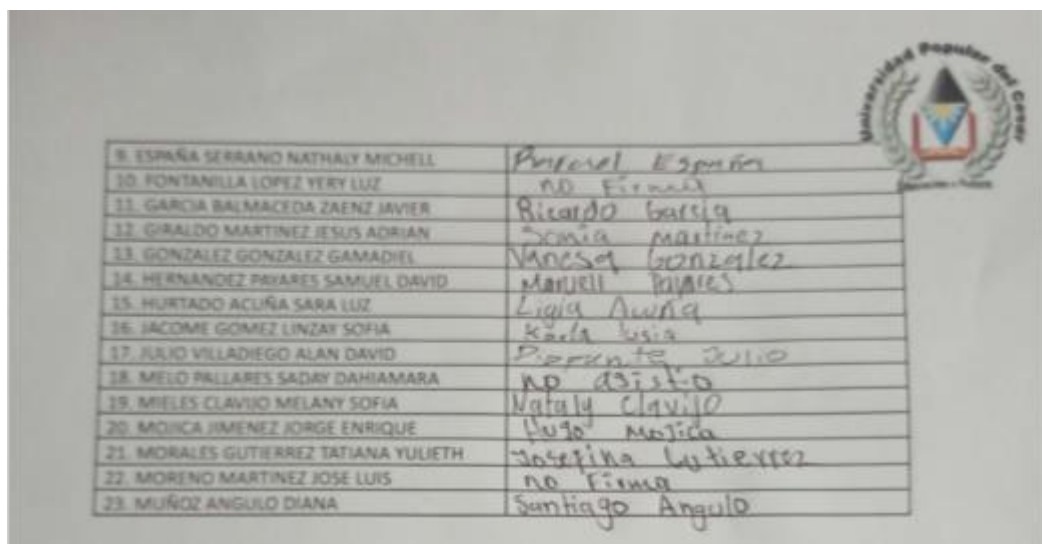 Universidad Popular del Cesar
9. ESPAÑA SERRANO NATHALY MICHELL España
10. FONTANILLA LOPEZ YERY LUZ no Firma
11. GARCIA BALMACEDA ZAENZ JAVIER Ricardo Garcia
12. GIRALDO MARTINEZ JESUS ADRIAN Sonia martinez
13. GONZALEZ GONZALEZ GAMADIEL Vanesa Gonzalez
14. HERNANDEZ PAYARES SAMUEL DAVID Payares
15. HURTADO ACUÑA SARA LUZ Ligia Acuña
16. JACOME GOMEZ LINZAY SOFIA Karla
17. JULIO VILLADIEGO ALAN DAVID Julio
18. MELO PALLARES SADAY DAHIAMARA no asistio
19. MIELES CLAVIJO MELANY SOFIA Nataly Clavijo
20. MOJICA JIMENEZ JORGE ENRIQUE Hugo Mojica
21. MORALES GUTIERREZ TATIANA YULIETH Josefina Gutierrez
22. MORENO MARTINEZ JOSE LUIS no Firma
23. MUÑOZ ANGULO DIANA Santiago Angulo